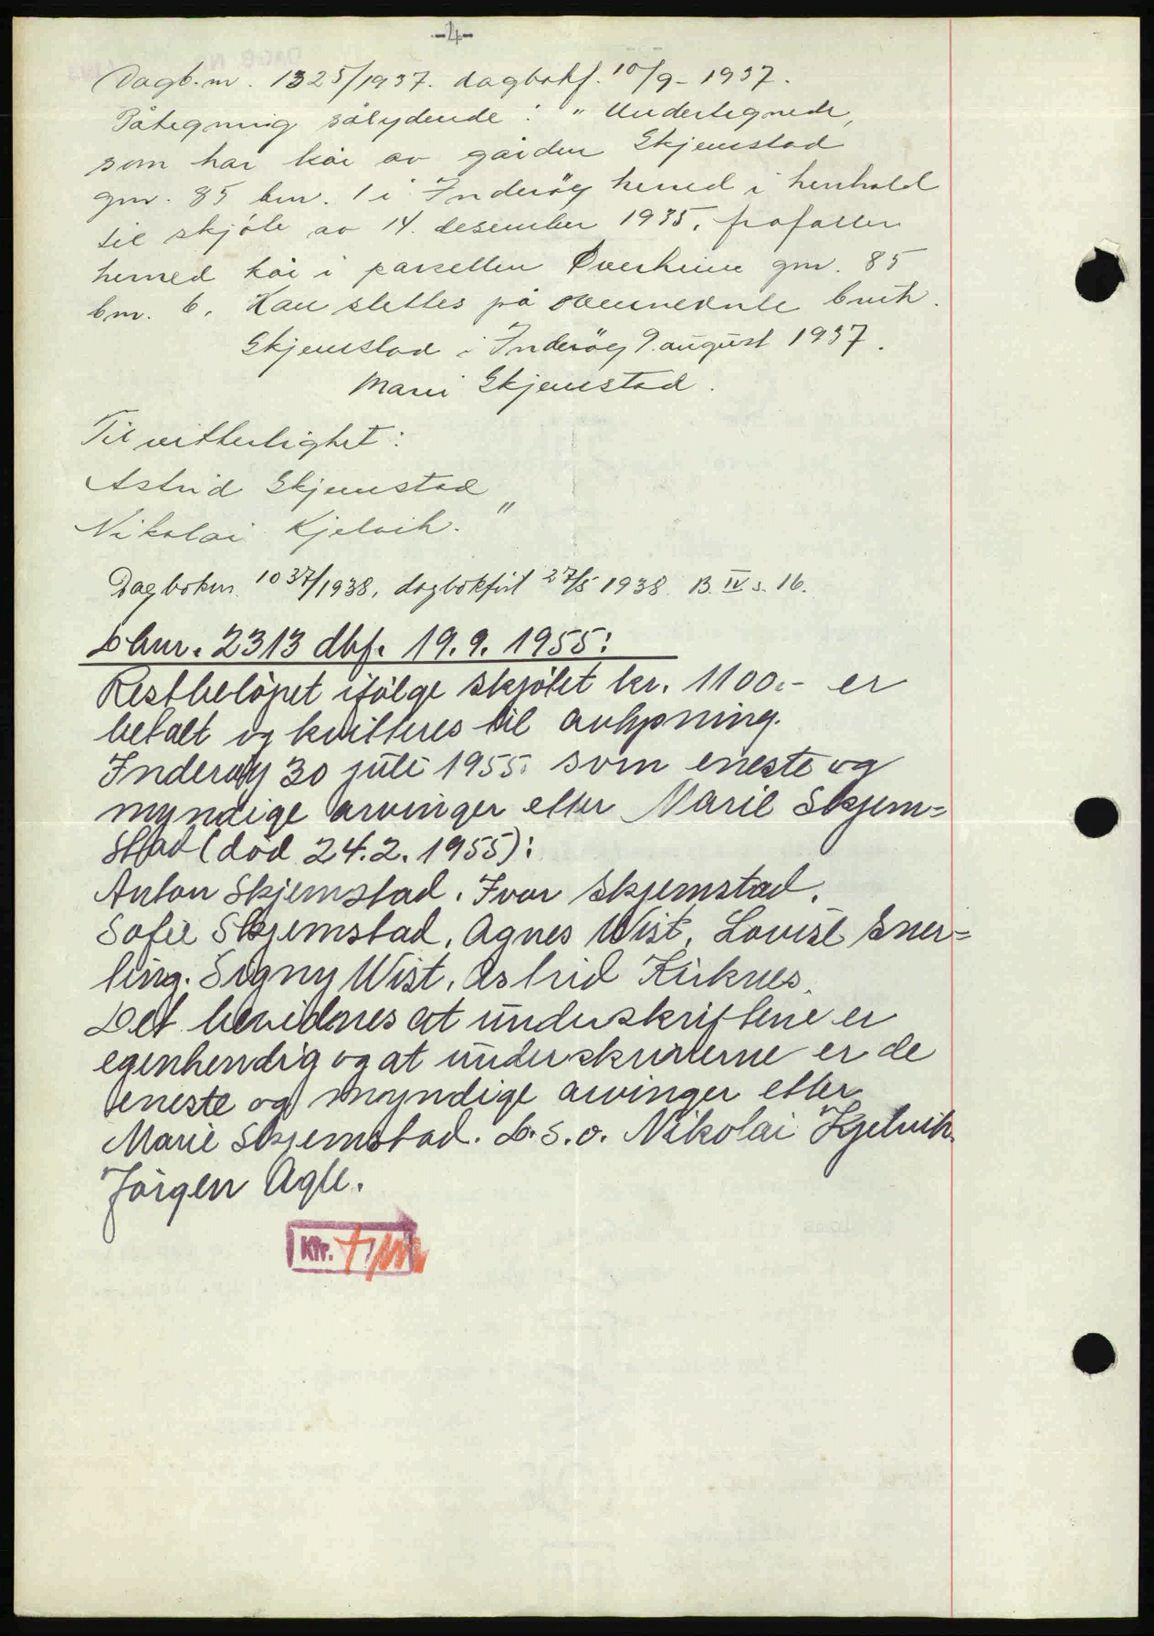 -4-
Dagb.nr. 1325/1937. dagbokf. 10/9-1937.
Påtegning sålydende: "Undertegnede,
som har kår av gården Skjemstad
gnr. 85 bnr. 1 i Inderøy herred i henhold
til skjøte av 14. desember 1935, frafaller
herved kår i parsellen Overheim gnr. 85
bnr. 6. Kan slettes på ovennevnte bruk.
Skjemstad i Inderøy 9. august 1937.
Marie Skjemstad.
Til vitterlighet:
Astrid Skjemstad
Nikolai Kjelvik."
Dagboknr. 1037/1938, dagbokført 27/5 1938 B. IV s. 16.
Dbnr. 2313 dbf. 19.9.1955:
Restbeløpet ifølge skjøtet kr. 1100.- er
betalt og kvitteres til avlysning.
Inderøy 30 juli 1955. Som eneste og
myndige arvinger etter Marie Skjem=
stad (død 24.2.1955):
Anton Skjemstad. Ivar Skjemstad.
Sofie Skjemstad, Agnes Wist, Lovise Sner=
ting. Signy Wist, Astrid Kirknes.
Det bevidnes at underskriftene er
egenhendig og at underskriverne er de
eneste og myndige arvinger etter
Marie Skjemstad. D.S.o. Nikolai Kjelvik.
Jørgen Agle.
Kfr.